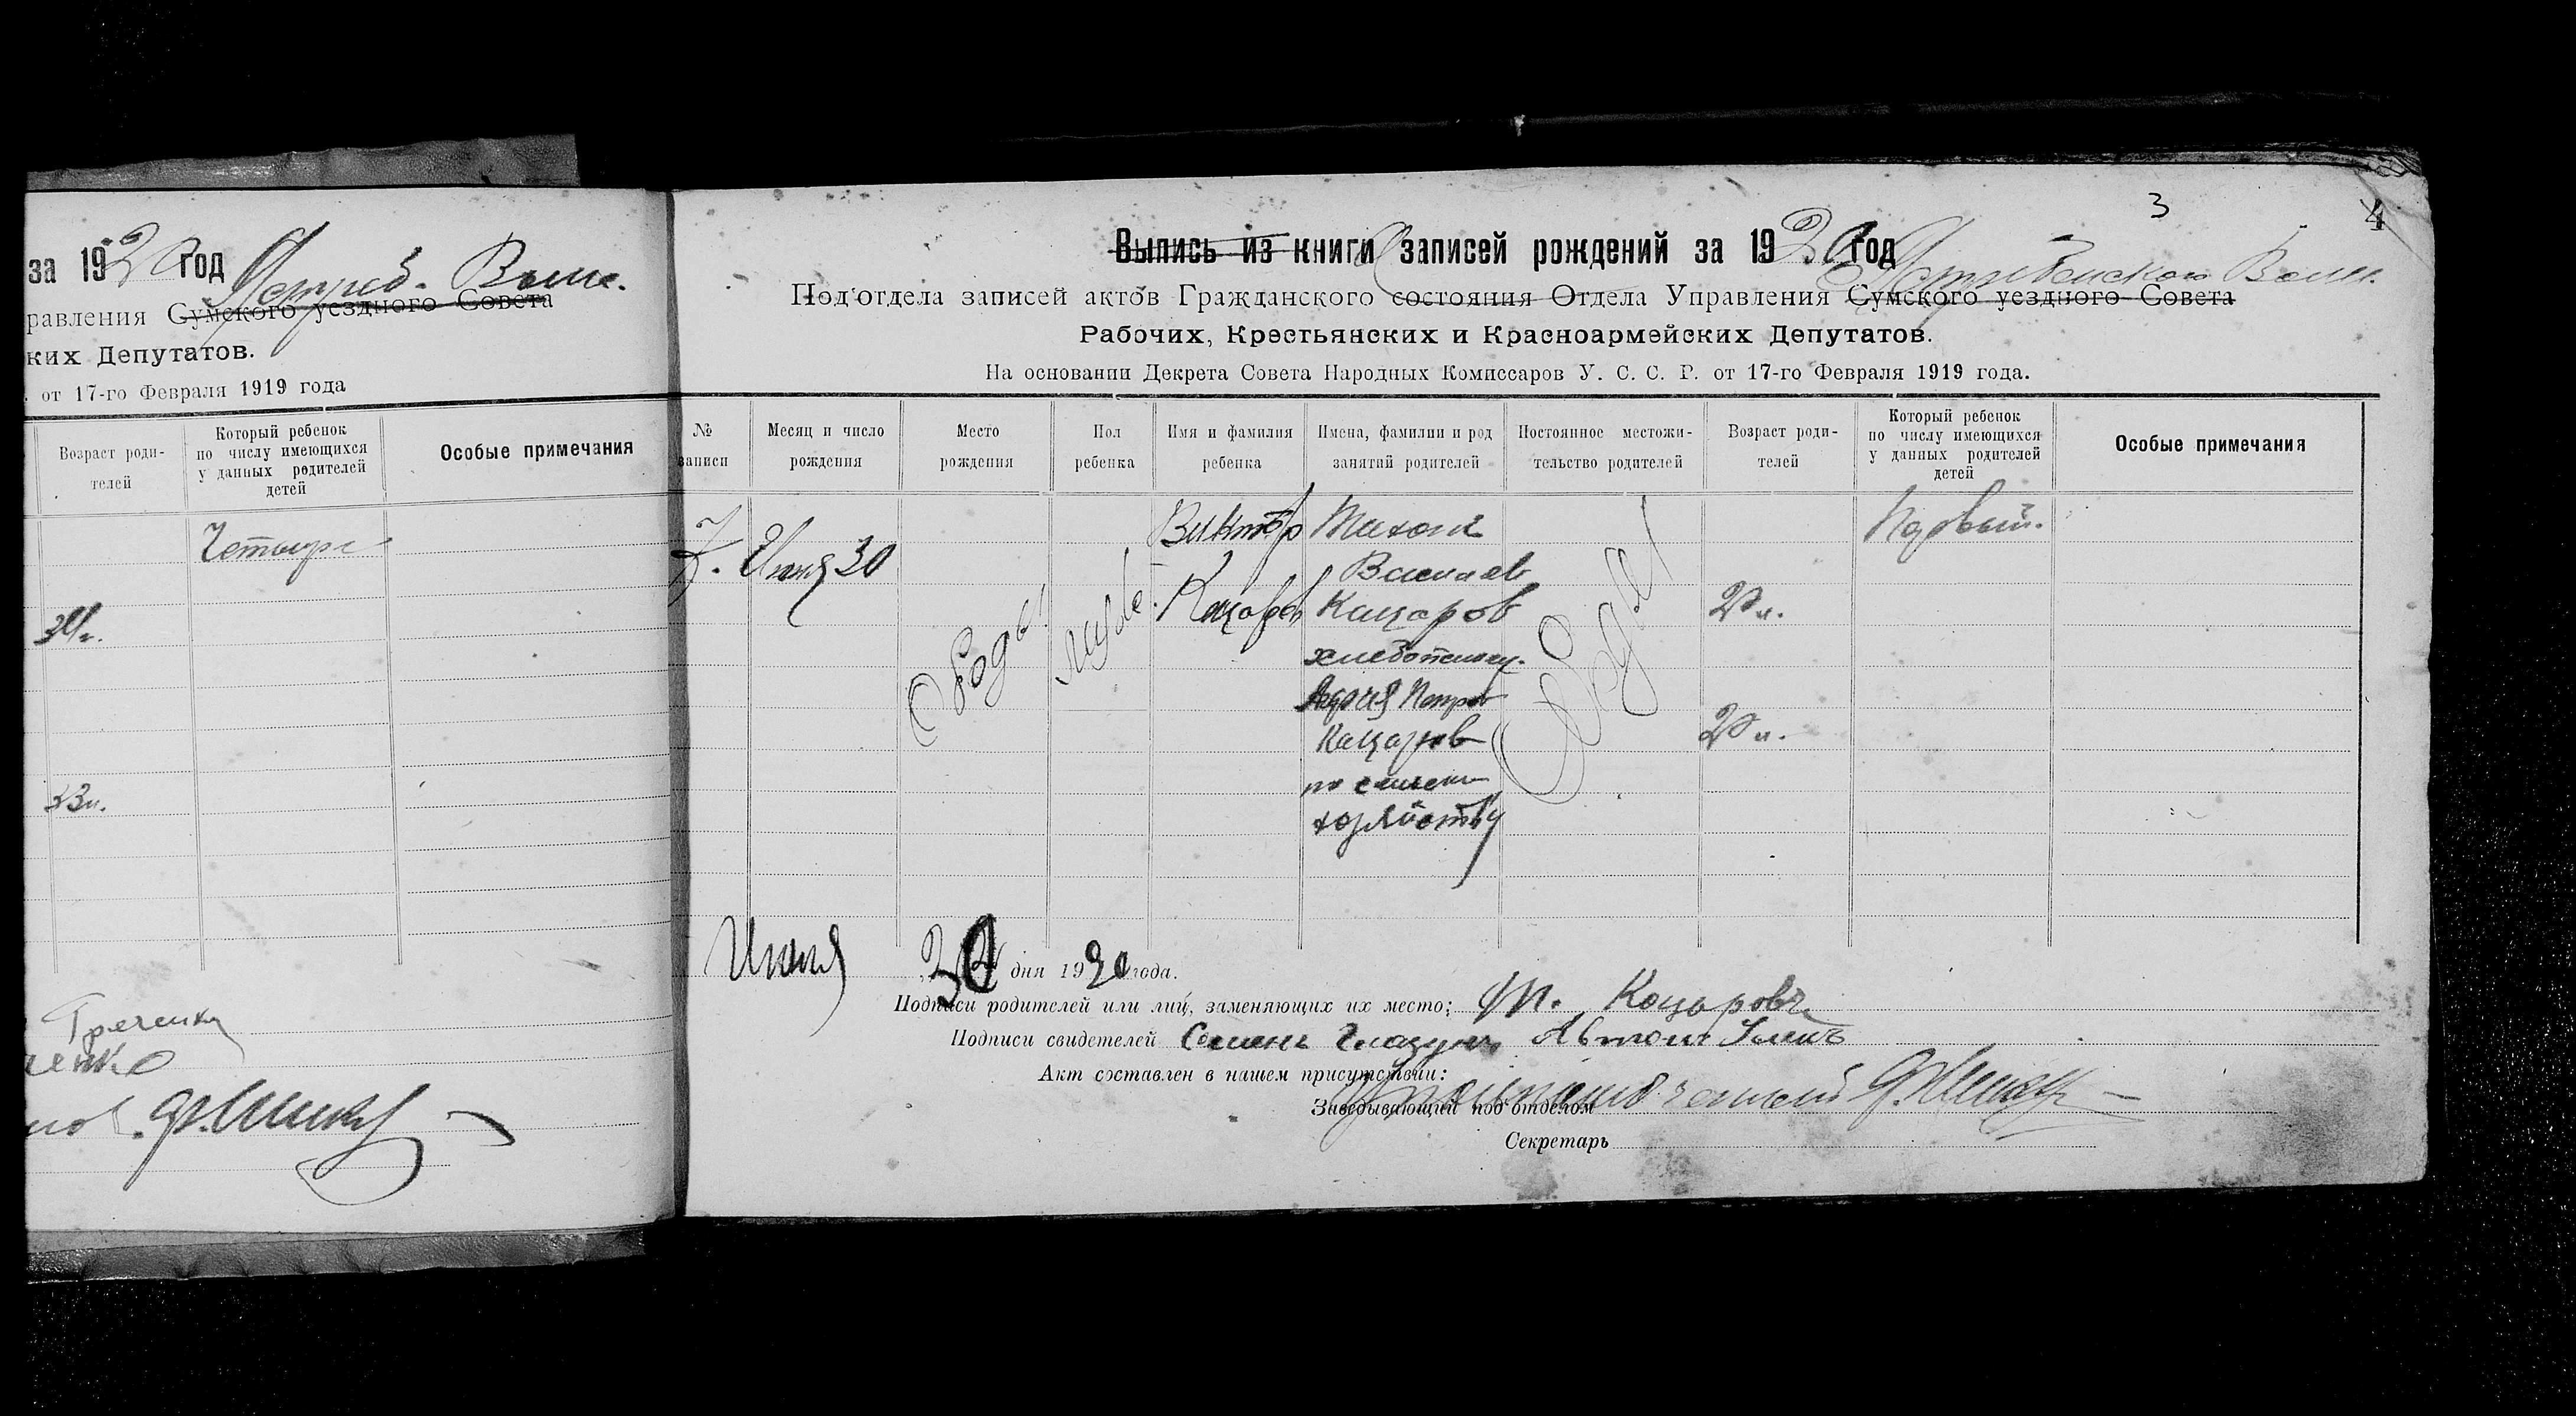 за 1920 год Ястреб. Вол.
равления Сумского уездного Совета
ких Депутатов.
. от 17-го Февраля 1919 года
Возраст роди-
телей
Который ребенок
по числу имеющихся
у данных родителей
детей
Особые примечания
Четыре
34 г.
33 л.
Греченку
енко
3
4
Выпись из книги записей рождений за 1920 год
Под'отдела записей актов Гражданского состояния Отдела Управления Сумского уездного Совета
Рабочих, Крестьянских и Красноармейских Депутатов.
На основании Декрета Совета Народных Комиссаров У. С. С. Р. от 17-го Февраля 1919 года.
№
записи
Месяц и число
рождения
Место
рождения
Пол
ребенка
Имя и фамилия
ребенка
Имена, фамилии и род
занятий родителей
Постоянное местожи-
тельство родителей
Возраст роди-
телей
Который ребенок
по числу имеющихся
у данных родителей
детей
Особые примечания
7.
30
Ободы
мужс.
Виктор
Кацаров
Тихон
Васильев
Кацаров
хлебопашец.
Петров
Кацаров
по сельск
хозяйству
Ободы
20 л.
20 л.
Первый.
30 дня 1920 года.
Подписи родителей или лиц, заменяющих их место: Т. Коцаровъ
Подписи свидетелей Семенъ Глазунъ
Акт составлен в нашем присутствии:
Заведывающий под'отделом
Секретарь